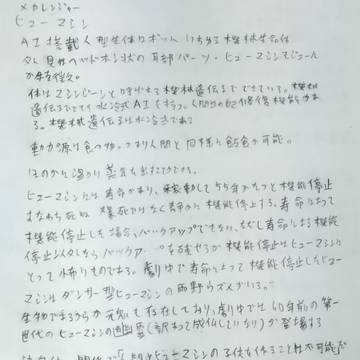 メカレンジャー
ヒューマシン
AI搭載人型生体ロボット いわゆる機械生命体
少し見せヘッドホン状の耳部パーツ・ヒューマシンモジュール
が特徴。
体はマシンジーンと呼ばれる機械遺伝子でできている。機械
遺伝子でできた水冷式AIを持つ。人間の
る。機械遺伝子は水冷式である
動力源は食べ物。つまり人間と同様に飲食が可能。
ほのかに温かい蒸気を出すことができる。
ヒューマシンには寿命があり、稼動して55年がたつと機能停止
すなわち死ぬ 爆死ではなく寿命で機能停止する。寿命によって
機能停止した場合、バックアップできない。ただし寿命による機能
停止以外ならバックアップ 機能停止はヒューマシンに
とって怖いものである。劇中で寿命によって機能停止したヒュー
マシンはダンサー型ヒューマシンの雨野ウズメがいる。
生物であるから元気も存在しており、劇中では60年前の第一
世代のヒューマシンの幽霊(訳あって成仏していない)が登場する
ヒューマシンの子供を作ることは不可能